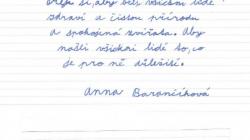 si, aby byli všichni lidé
zdraví a čistou přírodu
a spokojená zvířata. Aby
našli všichni lidé to, co
je pro ně důležité.
Anna Barančíková